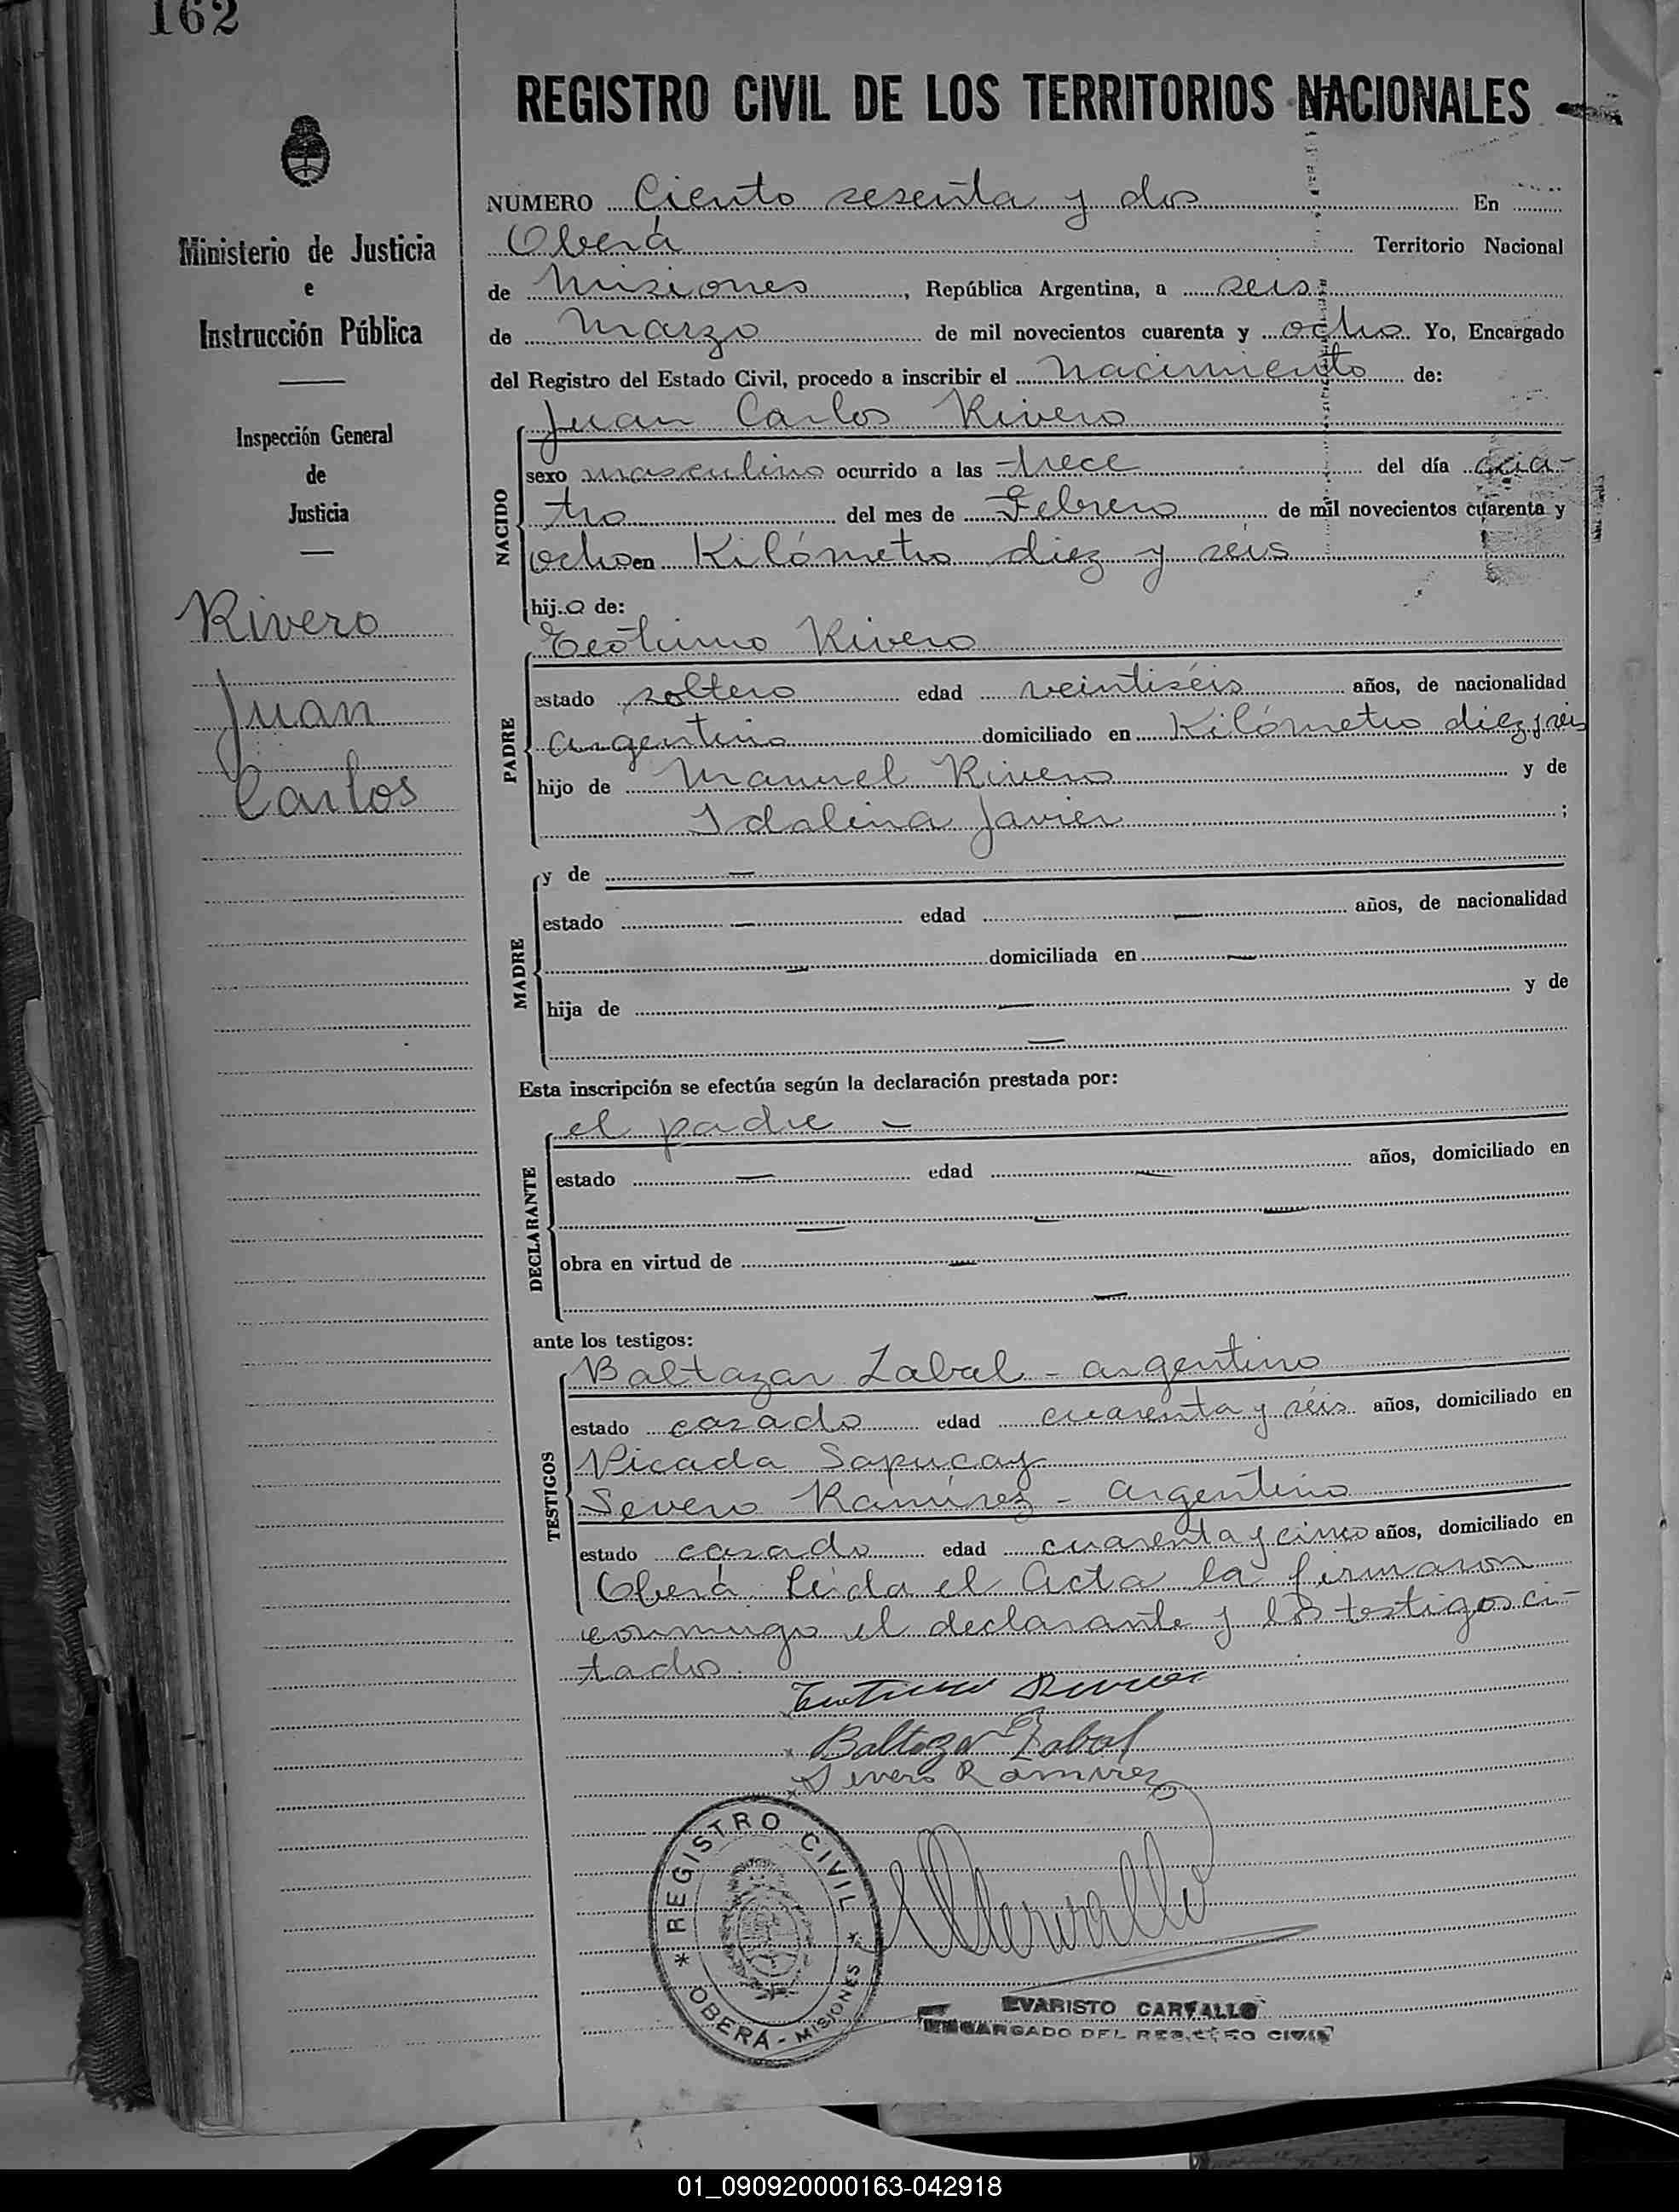 162
REGISTRO CIVIL DE LOS TERRITORIOS NACIONALES
Ministerio de Justicia
e
Instrucción Pública
Inspección General
de
Justicia
Rivero
Juan
Carlos
NUMERO Ciento sesenta y dos En
Oberá Territorio Nacional
de Misiones, República Argentina, a seis
de Marzo de mil novecientos cuarenta y ocho Yo, Encargado
del Registro del Estado Civil, procedo a inscribir el Nacimiento de:
NACIDO
Juan Carlos Rivero
sexo masculino ocurrido a las trece del día cua-
tro del mes de Febrero de mil novecientos cuarenta y
ocho en Kilómetro diez y seis
hijo de:
PADRE
Teótimo Rivero
estado soltero edad veintiséis años, de nacionalidad
argentino domiciliado en Kilómetro diez y seis
hijo de Manuel Rivero y de
Idalina Javier ;
MADRE
y de —
estado — edad — años, de nacionalidad
— domiciliada en —
hija de — y de
—
Esta inscripción se efectúa según la declaración prestada por:
DECLARANTE
el padre —
estado — edad — años, domiciliado en
— — —
obra en virtud de —
—
ante los testigos:
TESTIGOS
Baltazar Zabal - argentino
estado casado edad cuarenta y séis años, domiciliado en
Picada Sapucay
Severo Ramírez - argentino
estado casado edad cuarenta y cinco años, domiciliado en
Oberá. Leida el Acta la firmaron
conmigo el declarante y los testigos ci-
tados.
Teotimo Rivero
Baltazar Zabal
Severo Ramirez
REGISTRO CIVIL
OBERÁ - MISIONES
EVARISTO CARVALLO
ENCARGADO DEL REGISTRO CIVIL
01_090920000163-042918